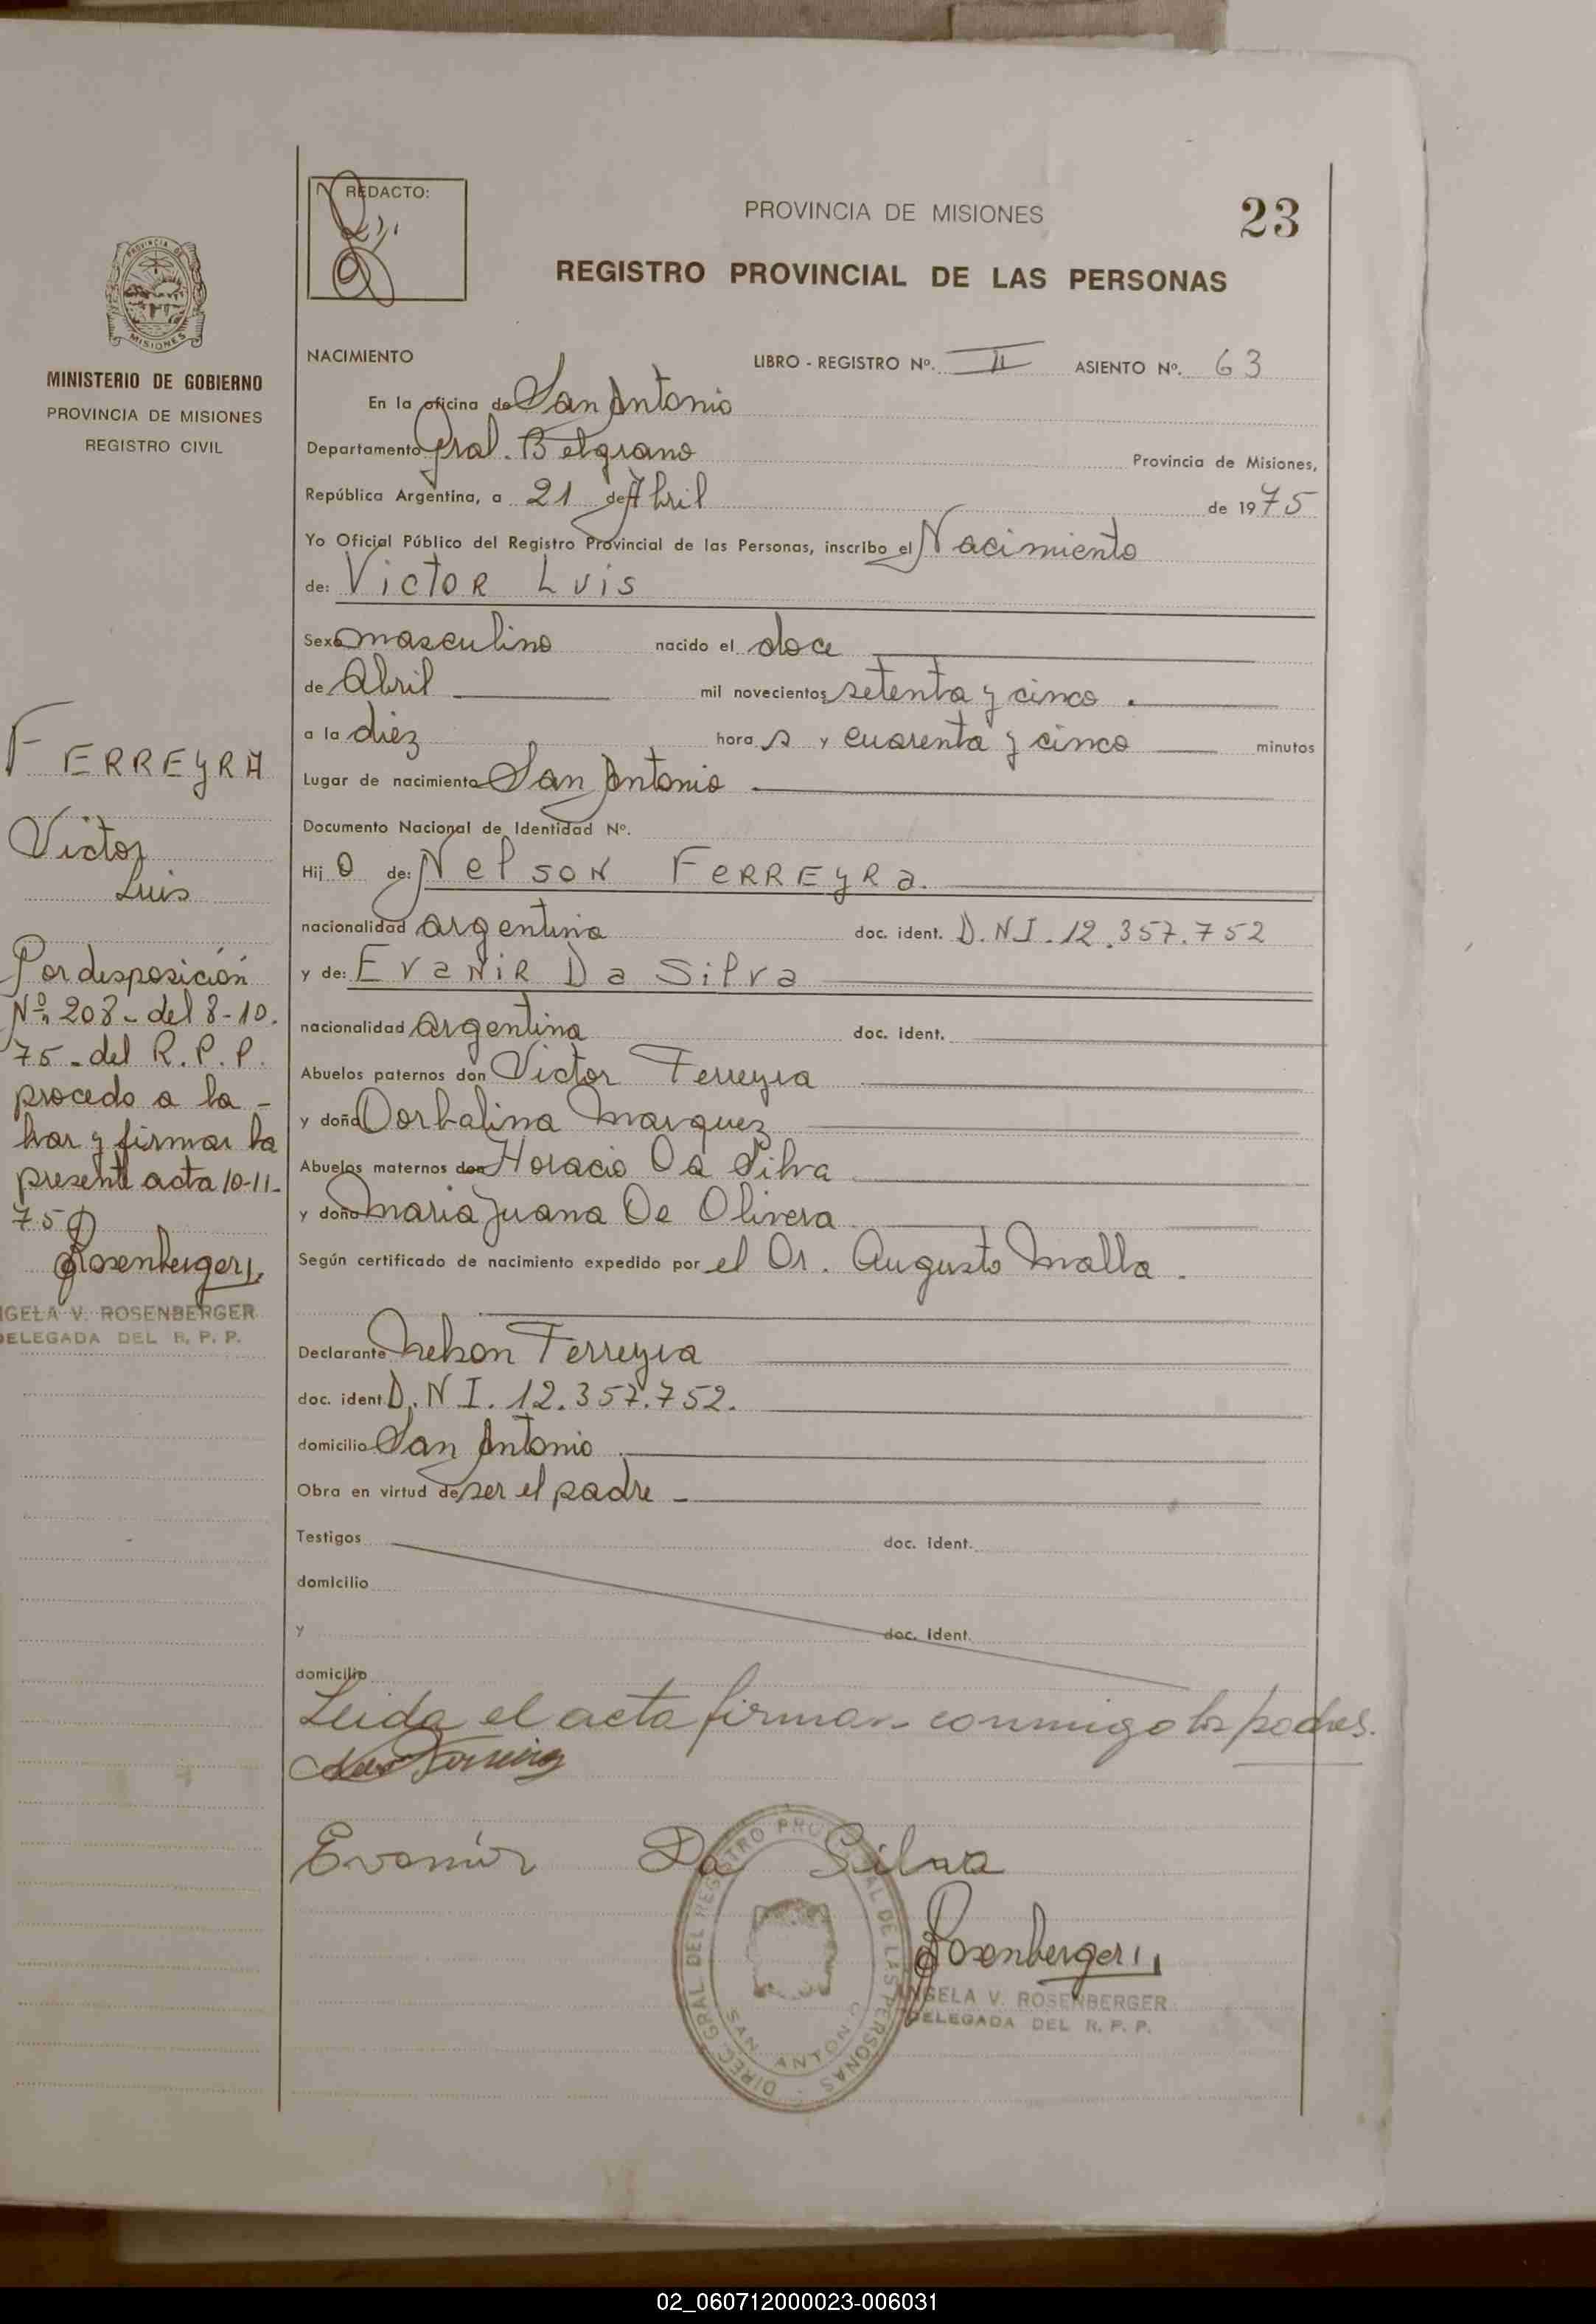 REDACTO:
PROVINCIA DE MISIONES
23
REGISTRO PROVINCIAL DE LAS PERSONAS
PROVINCIA DE
MISIONES
MINISTERIO DE GOBIERNO
PROVINCIA DE MISIONES
REGISTRO CIVIL
FERREYRA
Victor
Luis
Por disposición
Nº 208 - del 8-10.
75 - del R. P. P.
procedo a la -
brar y firmar la
presente acta 10-11-
75
Rosenberger
NGELA V. ROSENBERGER
DELEGADA DEL R. P. P.
NACIMIENTO LIBRO - REGISTRO Nº. II ASIENTO Nº. 63
En la oficina de San Antonio
Departamento Gral. Belgrano Provincia de Misiones,
República Argentina, a 21 de Abril de 1975
Yo Oficial Público del Registro Provincial de las Personas, inscribo el Nacimiento
de: Victor Luis
Sexo masculino nacido el doce
de Abril mil novecientos setenta y cinco.
a la diez hora s y cuarenta y cinco minutos
Lugar de nacimiento San Antonio
Documento Nacional de Identidad Nº.
Hij o de: Nelson Ferreyra.
nacionalidad argentina doc. ident. D.N.I. 12.357.752
y de: Evanir Da Silva
nacionalidad argentina doc. ident.
Abuelos paternos don Victor Ferreyra
y doña Dorbalina Marquez
Abuelos maternos don Horacio Da Silva
y doña Maria Juana De Olivera
Según certificado de nacimiento expedido por el Dr. Augusto Malla.
Declarante Nelson Ferreyra
doc. ident. D.N.I. 12.357.752.
domicilio San Antonio
Obra en virtud de ser el padre -
Testigos doc. ident.
domicilio
y doc. ident.
domicilio
Leida el acta firman conmigo los padres.
Evanir Da Silva
DIREC. GRAL DEL REGISTRO PROVINCIAL DE LAS PERSONAS
SAN ANTONIO
Rosenberger
NGELA V. ROSENBERGER
DELEGADA DEL R. P. P.
02_060712000023-006031